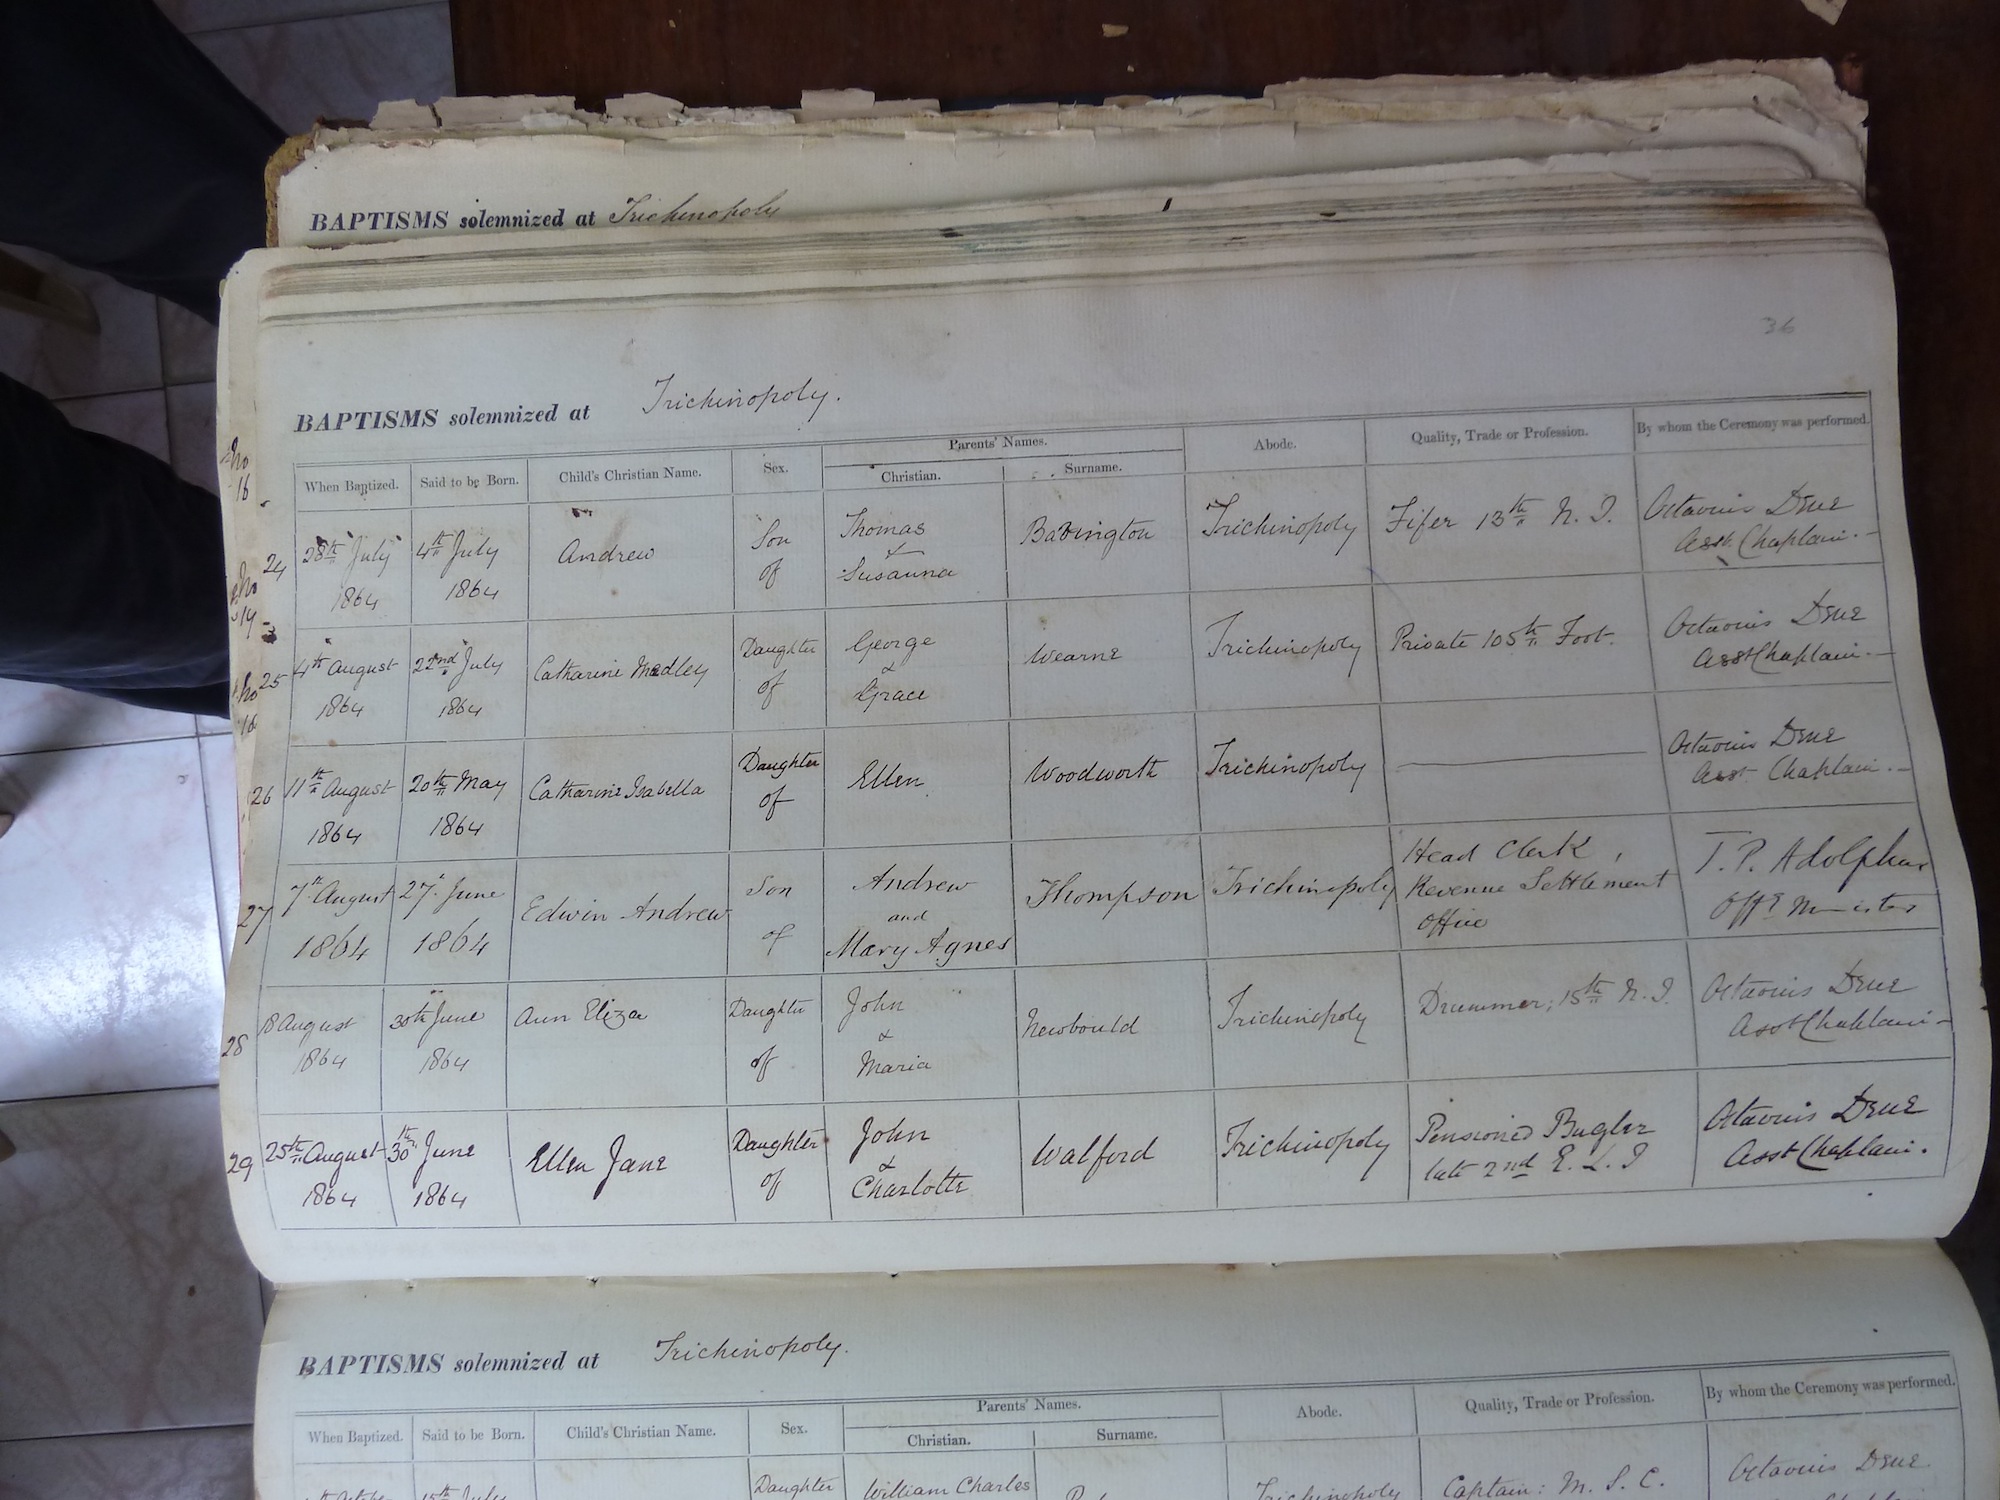 BAPTISMS solemnized at Trichinopoly
36
BAPTISMS solemnized at Trichinopoly.
When Baptized. Said to be Born. Child's Christian Name. Sex. Parents' Names. Abode. Quality, Trade or Profession. By whom the Ceremony was performed.
Christian. Surname.
24 28th July 4th July Andrew Son Thomas Trichinopoly Fifer 13th N. I. Octavius Drue
1864 1864 of & Susanna Asst. Chaplain.
25 4th August 22nd July Catharine Medley Daughter George Wearne Trichinopoly Private 105th Foot. Octavius Drue
1864 1864 of & Grace Asst Chaplain.
26 11th August 20th May Catharine Isabella Daughter Ellen Woodworth Trichinopoly Octavius Drue
1864 1864 of Asst. Chaplain.
27 7th August 27th June Edwin Andrew Son Andrew Thompson Trichinopoly Head Clerk, T. P. Adolphus
1864 1864 of and Revenue Settlement Offg Minister
Mary Agnes Office
28 18 August 30th June Ann Eliza Daughter John Newbould Trichinopoly Drummer, 15th N. I. Octavius Drue
1864 1864 of & Maria Asst Chaplain
29 25th August 30th June Ellen Jane Daughter John Walford Trichinopoly Pensioned Bugler Octavius Drue
1864 1864 of & Charlotte late 2nd E. L. I Asst Chaplain.
BAPTISMS solemnized at Trichinopoly.
When Baptized. Said to be Born. Child's Christian Name. Sex. Parents' Names. Abode. Quality, Trade or Profession. By whom the Ceremony was performed.
Christian. Surname.
15th July Daughter William Charles Trichinopoly Captain: M. S. C. Octavius Drue